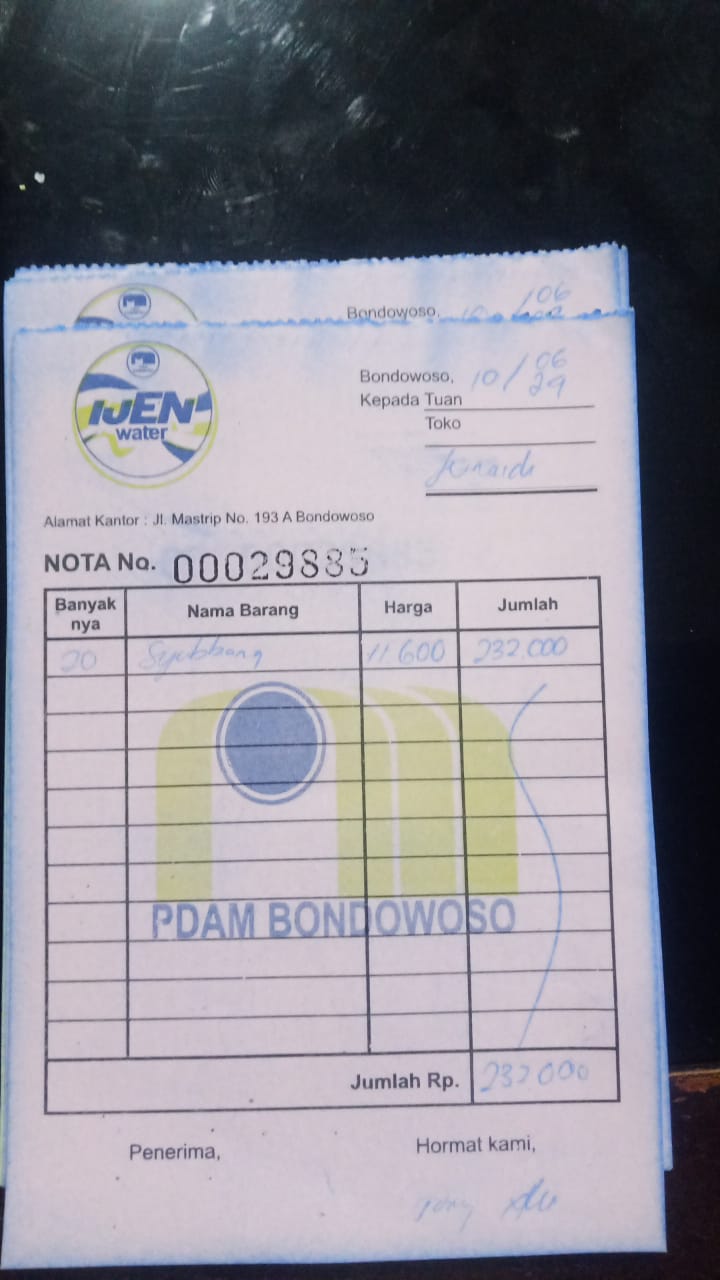 Bondowoso, 10/06
IJEN
water
Bondowoso, 10/06
29
Kepada Tuan
Toko
Junaidi
Alamat Kantor : Jl. Mastrip No. 193 A Bondowoso
NOTA No. 00029885
Banyak nya Nama Barang Harga Jumlah
20 11.600 232.000
PDAM BONDOWOSO
Jumlah Rp. 232000
Penerima, Hormat kami,
Tony